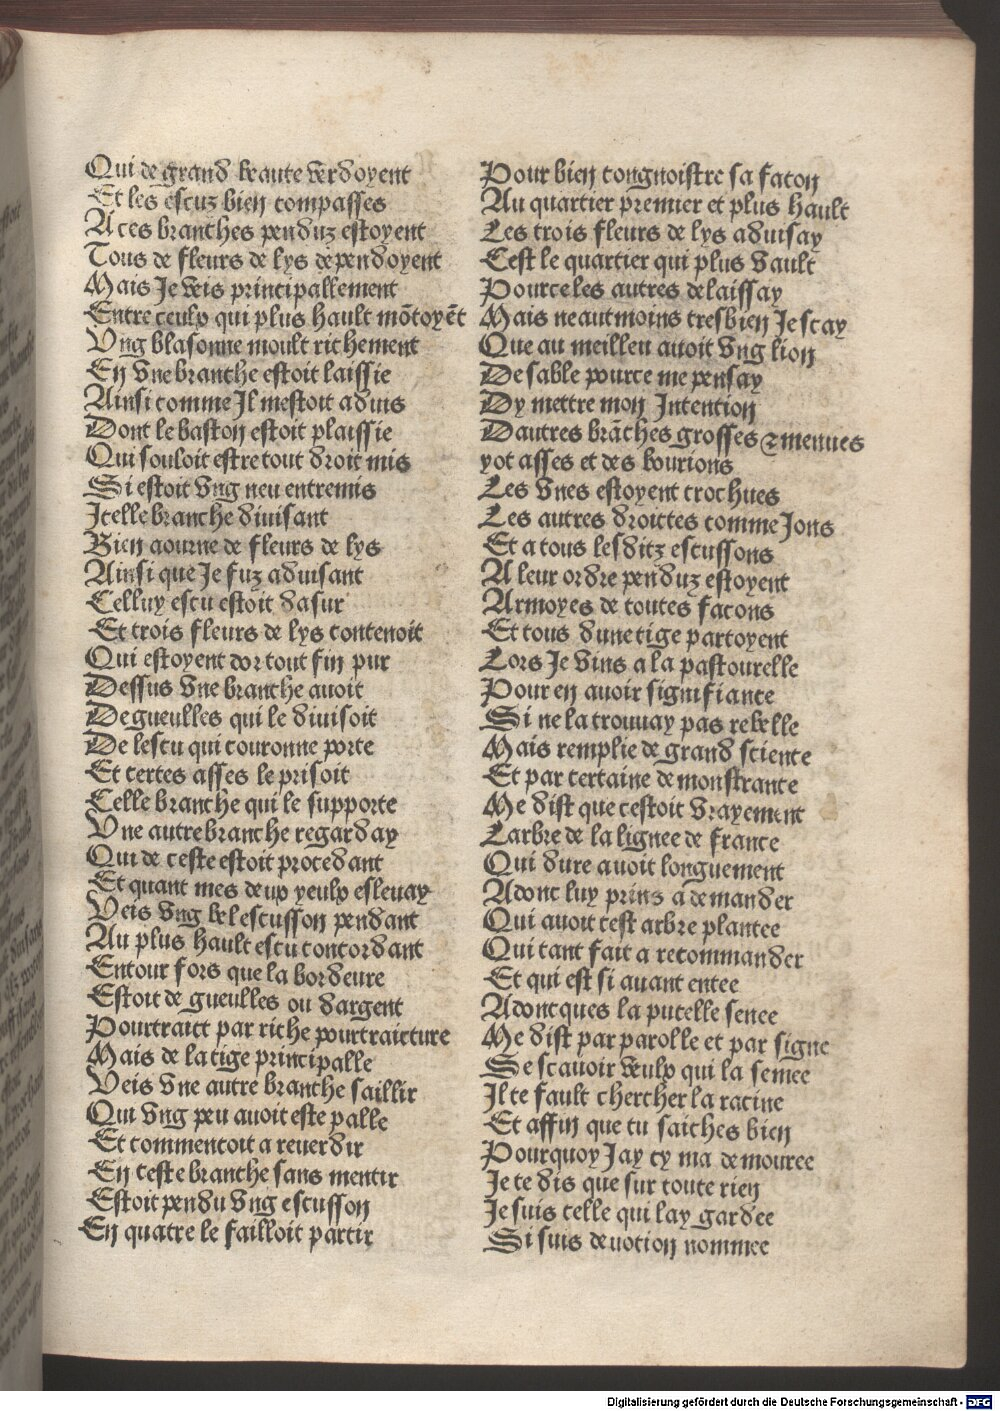 Qui de grand beaute verdoyent
Et les escuz bien compasses
A ces branches penduz estoyent
Tous de fleurs de lys dependoyent
Mais Je veis principallement
Entre ceulx qui plus hault mõtoyẽt
Ung blasonne moult richement
En une branche estoit laissie
Ainsi comme Il mestoit aduis
Dont le baston estoit plaissie
Qui souloit estre tout droit mis
Si estoit ung neu entremis
Icelle branche diuisant
Bien aourne de fleurs de lys
Ainsi que Je fuz aduisant
Celluy escu estoit dasur
Et trois fleurs de lys contenoit
Qui estoyent dor tout fin pur
Dessus une branche auoit
De gueulles qui le diuisoit
De lescu qui couronne porte
Et certes asses le prisoit
Celle branche qui le supporte
Une autre branche regarday
Qui de ceste estoit procedant
Et quant mes deux yeulx esleuay
Veis ung bel escusson pendant
Au plus hault escu concordant
Entour fors que la bordeure
Estoit de gueulles ou dargent
Pourtraict par riche pourtraicture
Mais de la tige principalle
Veis une autre branche saillir
Qui ung peu auoit este palle
Et commencoit a reuerdir
En ceste branche sans mentir
Estoit pendu ung escusson
En quatre le failloit partir
Pour bien congnoistre sa facon
Au quartier premier et plus hault
Les trois fleurs de lys aduisay
Cest le quartier qui plus vault
Pource les autres delaissay
Mais neautmoins tresbien Je scay
Que au meilleu auoit ung lion
De sable pource me pensay
Dy mettre mon Intention
Dautres brãches grosses & menues
yot asses et des bourions
Les unes estoyent crochues
Les autres droittes comme Jons
Et a tous lesditz escussons
A leur ordre penduz estoyent
Armoyes de toutes facons
Et tous dune tige partoyent
Lors Je vins a la pastourelle
Pour en auoir signifiance
Si ne la trouuay pas rebelle
Mais remplie de grand science
Et par certaine demonstrance
Me dist que cestoit vrayement
Larbre de la lignee de france
Qui dure auoit longuement
Adonc luy prins a demander
Qui auoit cest arbre plantee
Qui tant fait a recommander
Et qui est si auant entee
Adoncques la pucelle senee
Me dist par parolle et par signe
Se scauoir veulx qui la semee
Il te fault chercher la racine
Et affin que tu saiches bien
Pourquoy Jay cy ma demouree
Je te dis que sur toute rien
Je suis celle qui lay gardee
Si suis deuotion nommee
Digitalisierung gefördert durch die Deutsche Forschungsgemeinschaft - DFG